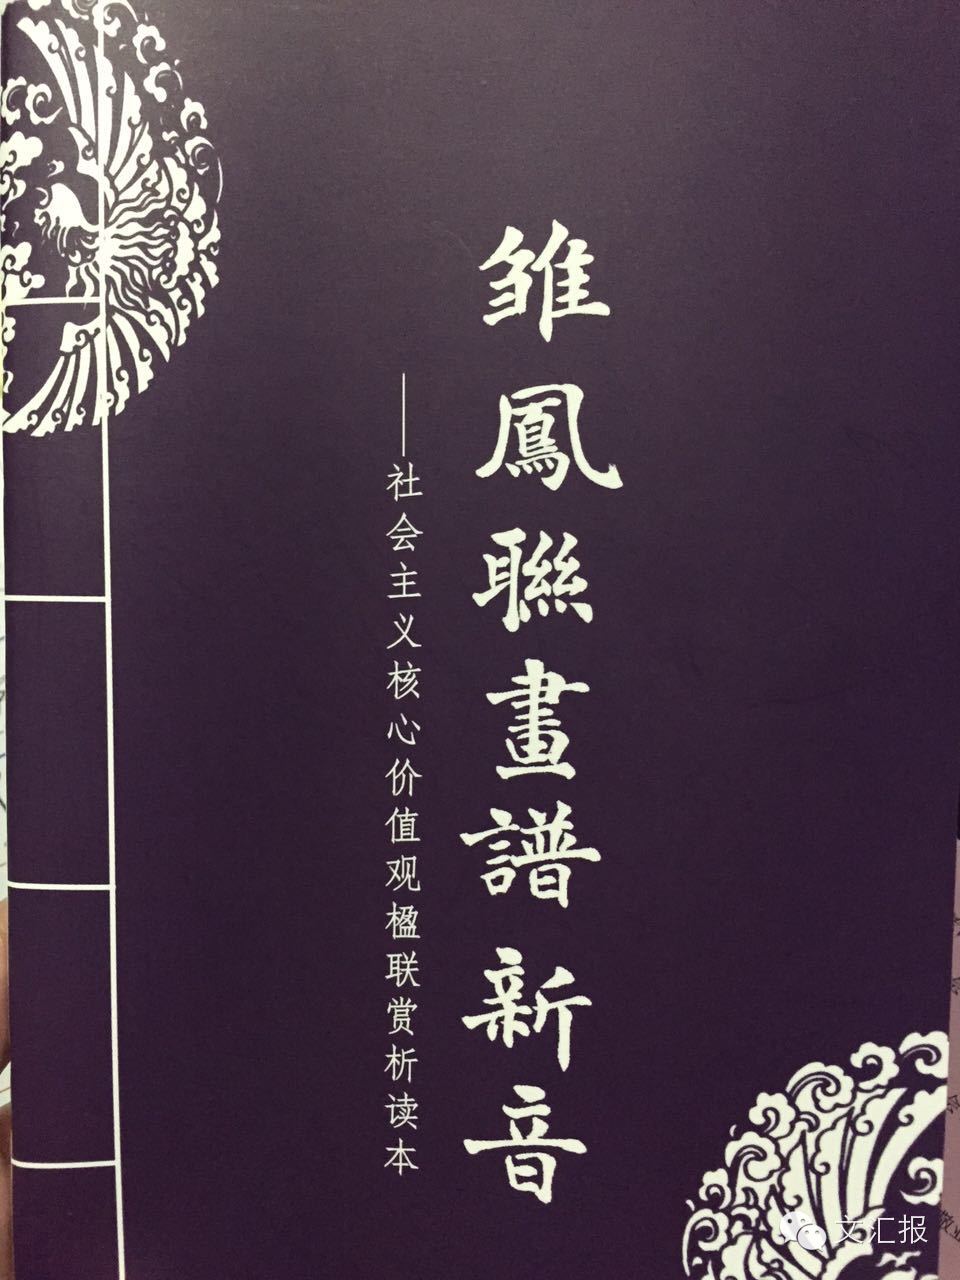 雏鳳聯畫譜新音
——社会主义核心价值观楹联赏析读本
文汇报